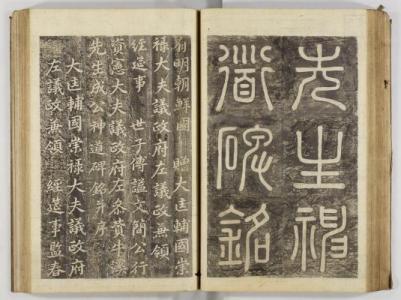 先生神
道碑銘
有明朝鮮國 贈大匡輔國崇
祿大夫議政府左議政兼領
經筵事 世子傅諡文簡公行
資憲大夫議政府左參贊牛溪
先生成公神道碑銘幷序
大匡輔國崇祿大夫議政府
左議政兼領 經筵事監春